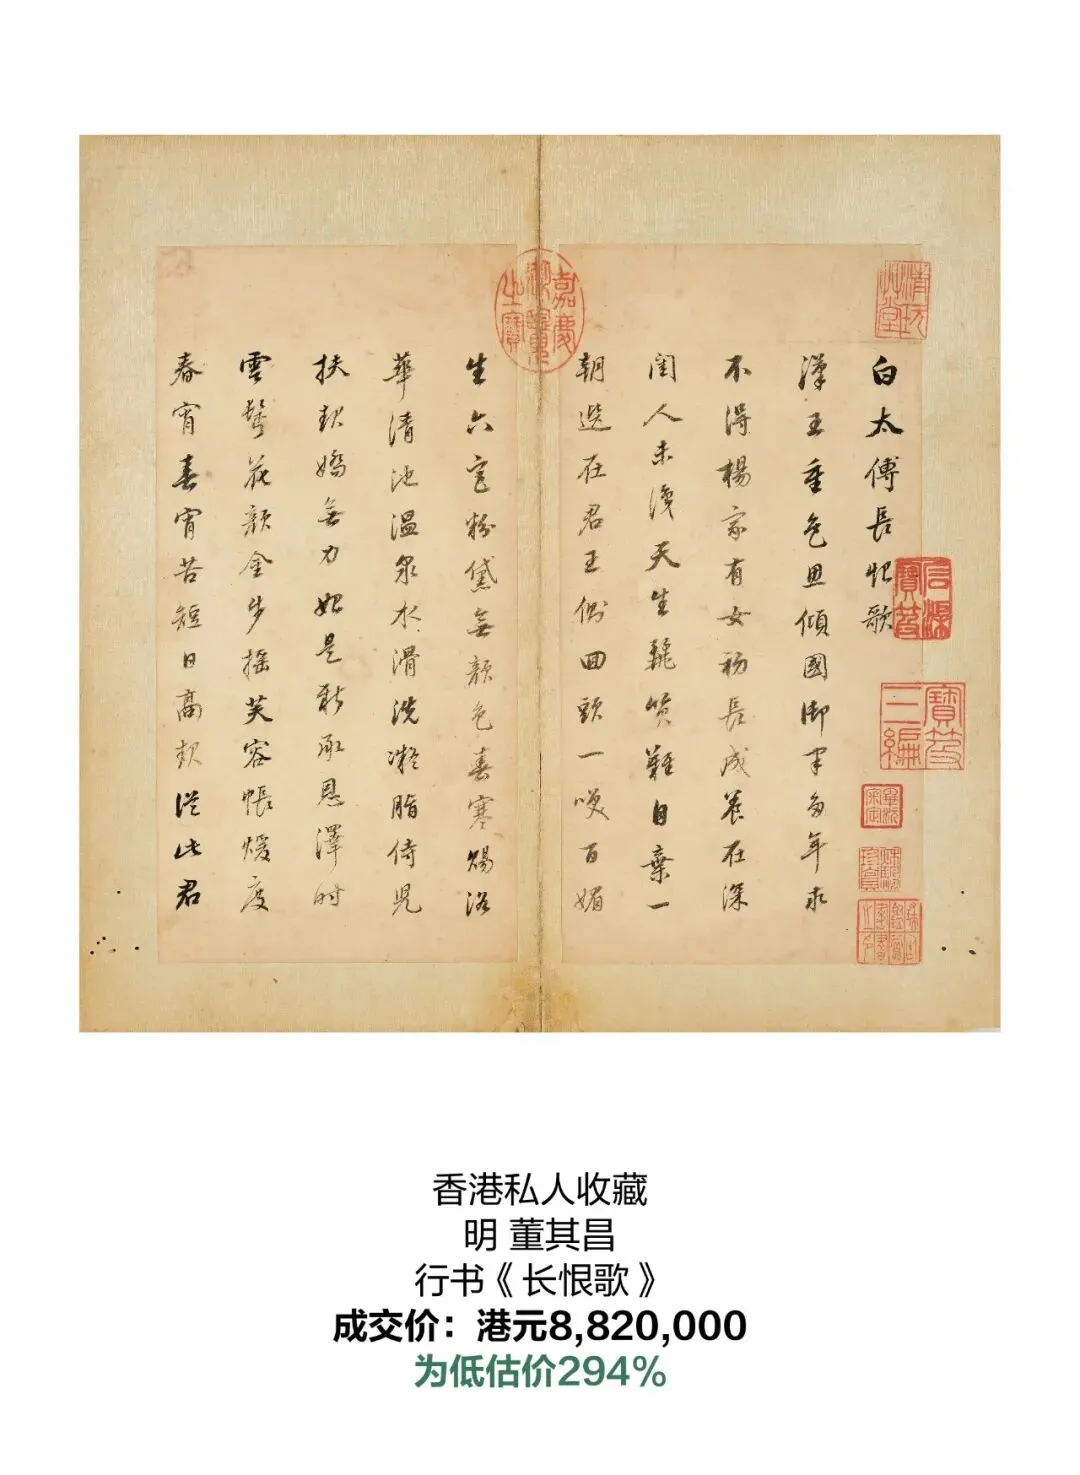 白太傅長恨歌
漢王重色思傾國御宇多年求
不得楊家有女初長成養在深
閨人未識天生麗質難自棄一
朝選在君王側回頭一笑百媚
生六宮粉黛無顏色春寒賜浴
華清池温泉水滑洗凝脂侍兒
扶起嬌無力始是新承恩澤時
雲鬢花顏金步摇芙容帳煖度
春宵春宵苦短日高起從此君
嘉慶御覽之寶
寶笈三編
香港私人收藏
明 董其昌
行书《长恨歌》
成交价：港元8,820,000
为低估价294%